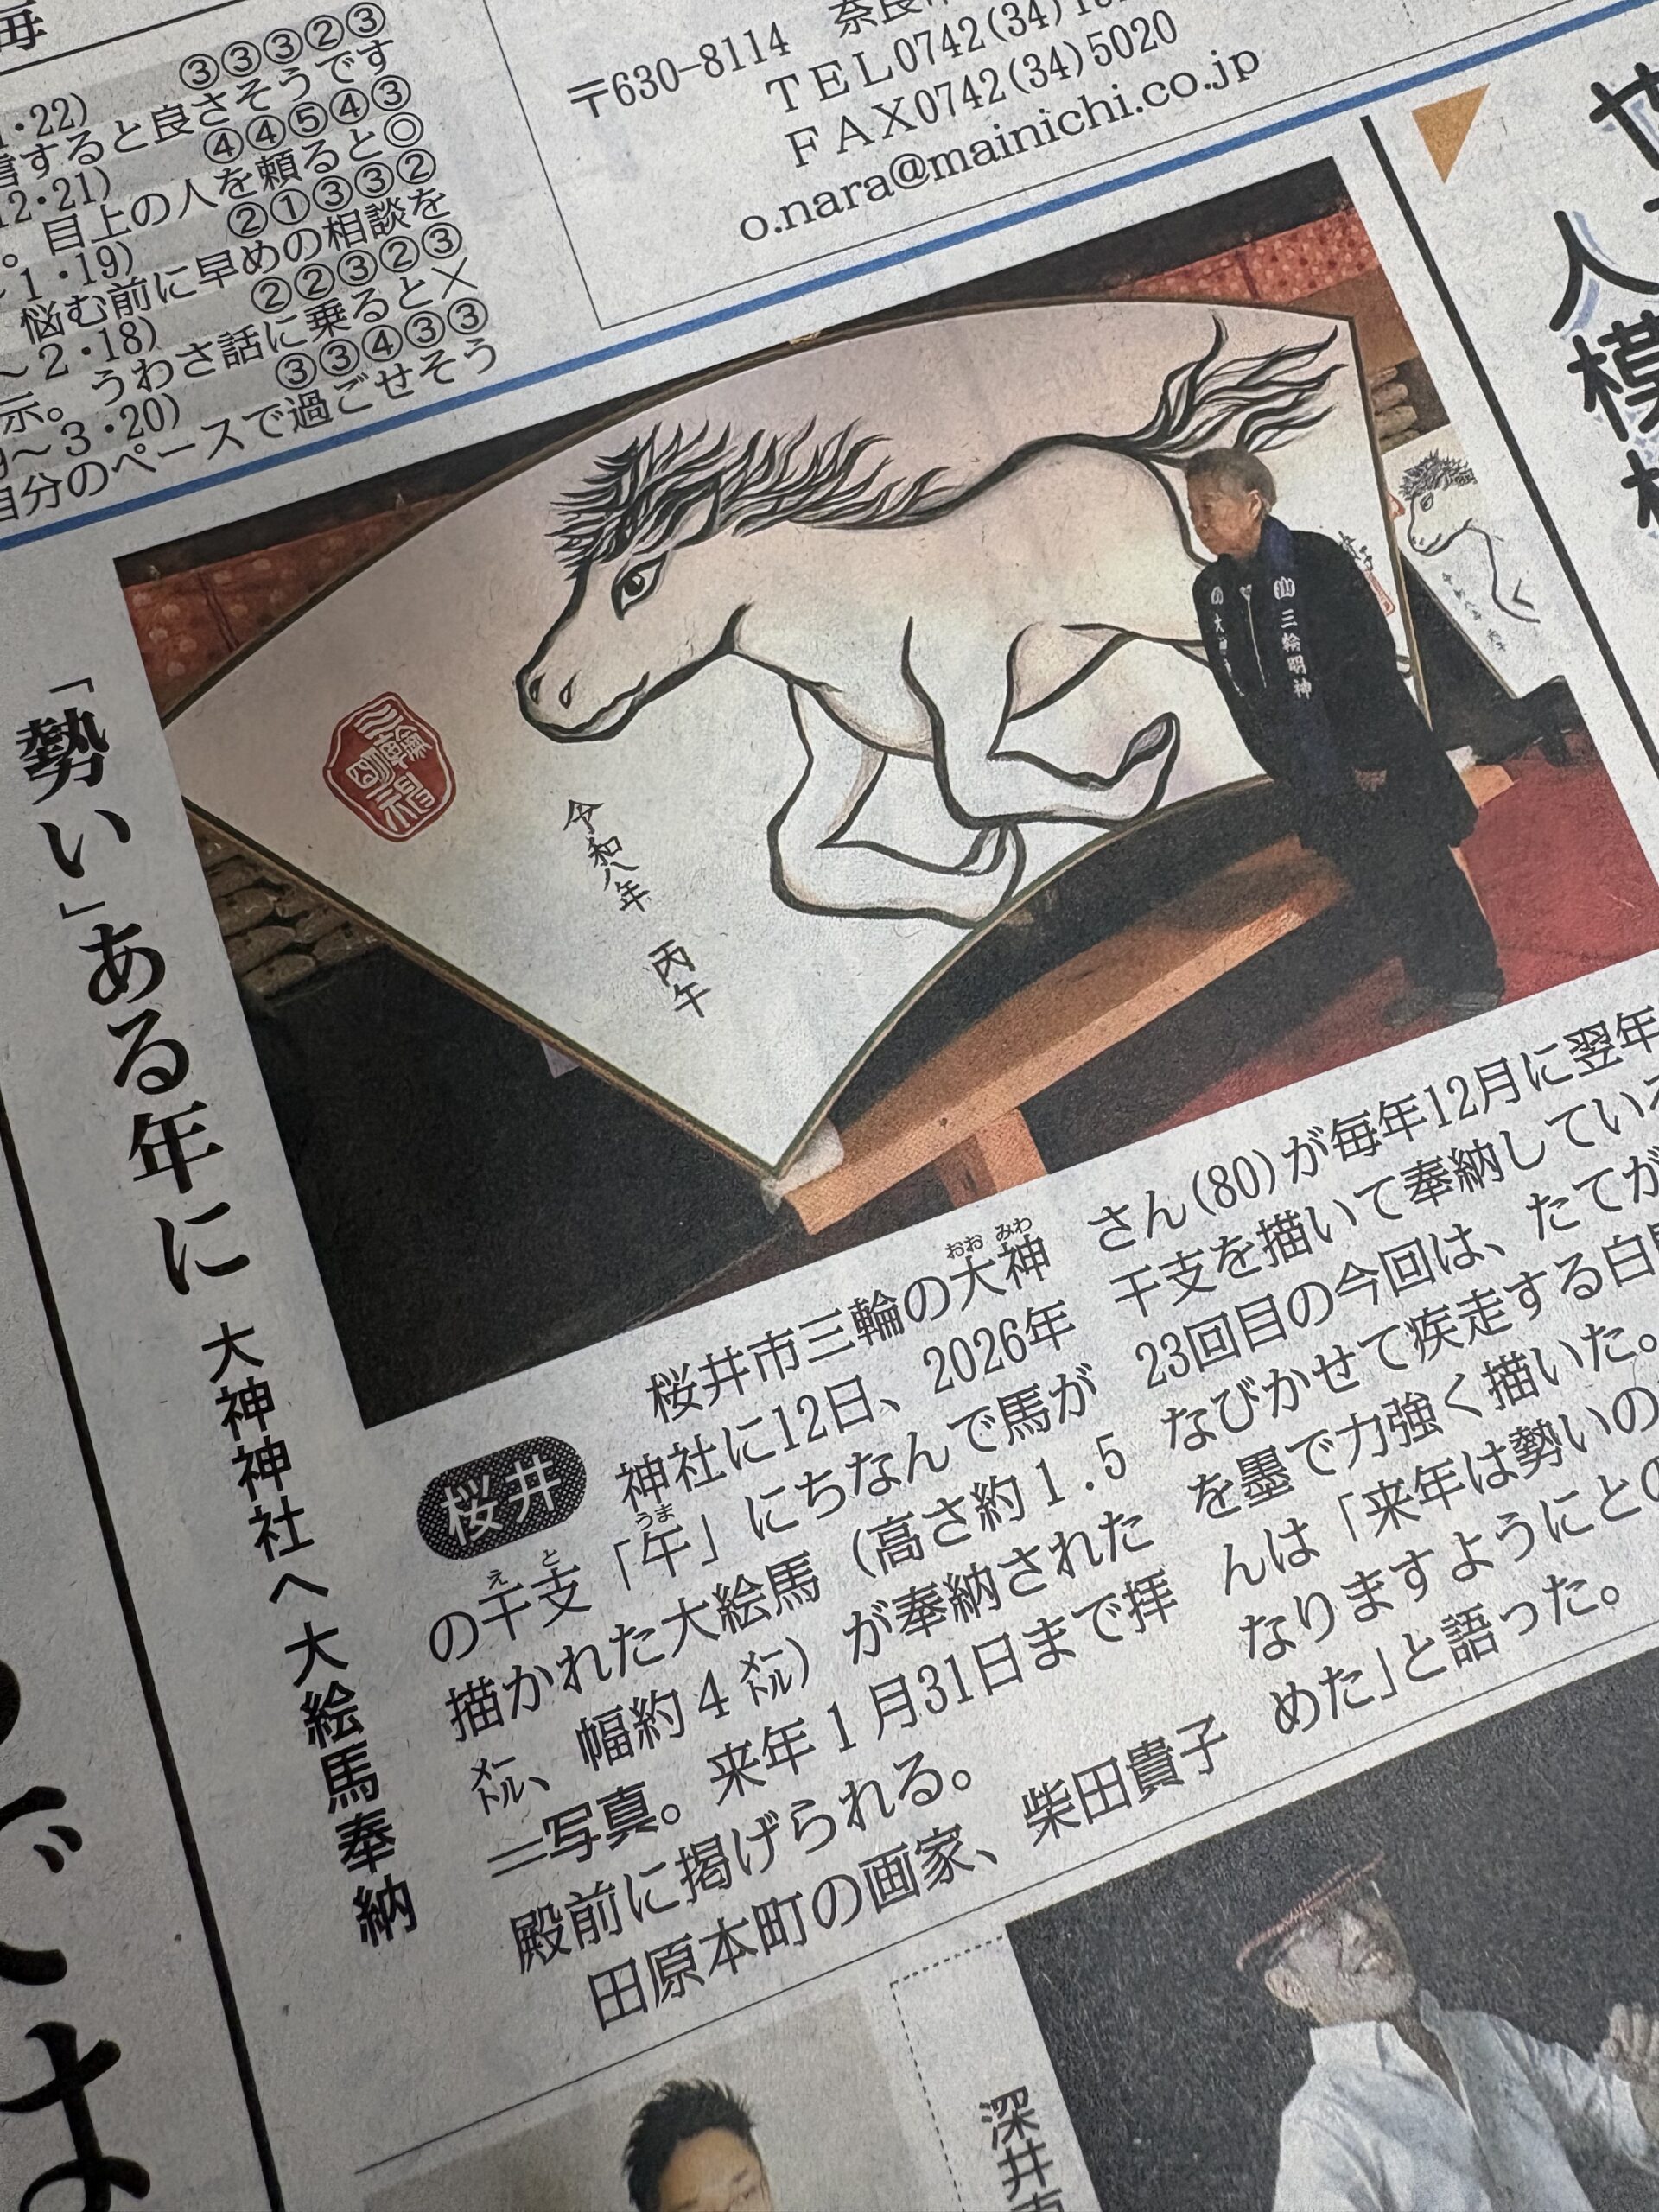 毎
③③③②③
・22)
すると良さそうです
④④⑤④③
12・21)
。目上の人を頼ると◎
②①③③②
1・19)
悩む前に早めの相談を
②②③②③
～2・18)
示。うわさ話に乗ると×
③③④③③
～3・20)
自分のペースで過ごせそう
〒630-8114
TEL0742(34)
FAX0742(34)5020
o.nara@mainichi.co.jp
人
模
三輪明神
令和八年 丙午
三輪明神
「勢い」ある年に
大神神社へ大絵馬奉納
桜井
桜井市三輪の大神
おお みわ
神社に12日、2026年
の干支「午」にちなんで馬が
え と うま
描かれた大絵馬(高さ約1.5
㍍、幅約4㍍)が奉納された
=写真。来年1月31日まで拝
殿前に掲げられる。
田原本町の画家、柴田貴子
さん(80)が毎年12月に翌年
干支を描いて奉納している
23回目の今回は、たてが
なびかせて疾走する白馬
を墨で力強く描いた。
んは「来年は勢いの
なりますようにとの
めた」と語った。
では
深井